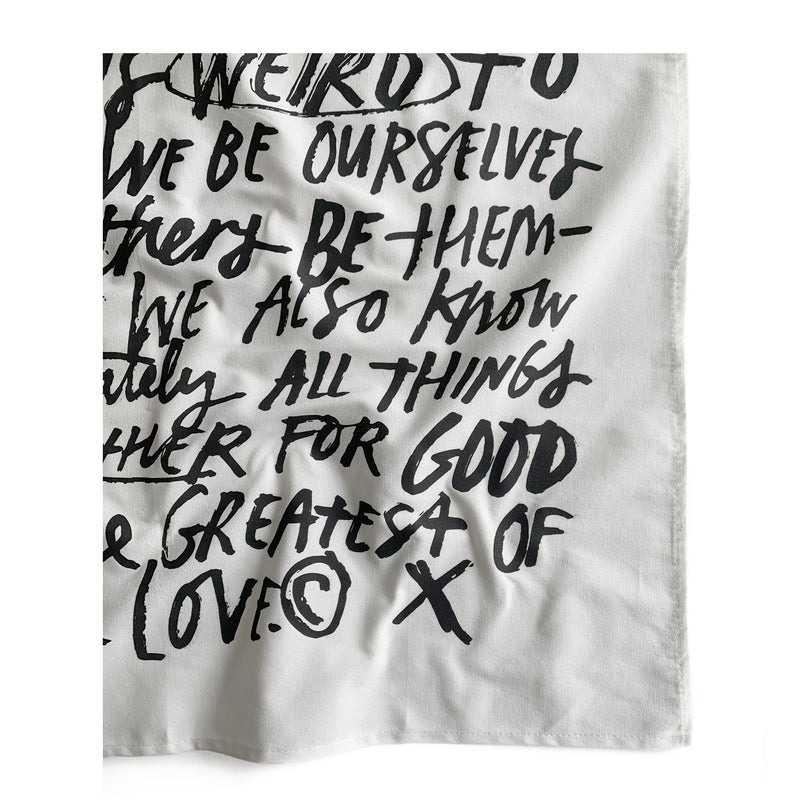 WEIRD TO
WE BE OURSELVES
thers BE THEM-
WE ALSO Know
ately ALL THINGS
THER FOR GOOD
e GREATEST OF
LOVE.© X